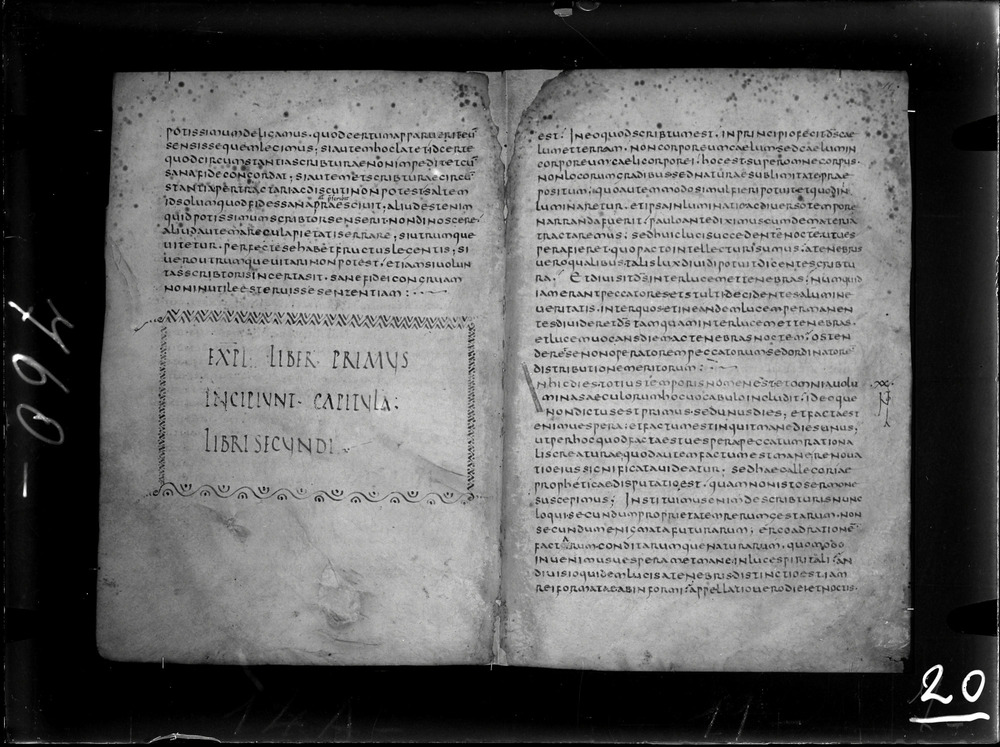 potissimum deligamus. quod certum apparuerit eum
sensisse quem legimus; si autem hoc latet id certe
quod circumstantia scribturae non impedit et cū
sana fide concordat; si autem et scribturae circū
stantia pertractari ac discuti non potest saltem
id solum quod fides sana praescribit. aliud est enim
quid potissimum scribtor senserit non dinoscere.
aliud autem a regula pietatis errare; si utrumque
uitetur. perfecte se habet fructus legentis; si
uero utrumque uitari non potest. etiam si uolun
tas scribtoris incerta sit. sanae fidei congruam
non inutile est eruisse sententiam:
EXPL. LIBER PRIMUS
INCIPIUNT CAPITULA;
LIBRI SECUNDI
est. In eo quod scribtum est. in principio fecit dš cae
lum et terram. non corporeum caelum sed caelum in
corporeum caeli corporei. hoc est super omne corpus.
non locorum gradibus sed naturae sublimitate prae
positum; quo autem modo simul fieri potuit et quod in
luminaretur. et ipsa inluminatio ac diuerso tempore
narranda fuerit. paulo ante diximus cum de materia
tractaremus; sed huic luci succedente nocte ut ues
pera fieret. quo pacto intellecturi sumus. a tenebris
uero qualibus talis lux diuidi potuit dicente scribtu
ra. Et diuisit dš inter lucem et tenebras; numquid
iam erant peccatores et stulti decidentes a lumine
ueritatis. inter quos et in eadem luce permanen
tes diuideret dš tamquam inter lucem et tenebras.
et lucem uocans diem ac tenebras noctem. osten
deret se non operatorem peccatorum sed ordinatorem
distributione meritorum:
An hic dies totius temporis nomen est et omnia uolu
mina saeculorum hoc uocabulo includit. ideoque
non dictus est primus sed unus dies; et facta est
enim uespera. et factum est inquit mane dies unus;
ut per hoc quod facta est uespera peccatum rationa
lis creaturae quod autem factum est mane renoua
tio eius significata uideatur. sed hae allegoriae
propheticae disputatio est. quam non isto sermone
suscepimus; Instituimus enim de scribturis nunc
loqui secundum proprietatem rerum gestarum. non
secundum enigmata futurarum; ergo ad rationē
factarum conditarumque naturarum. quomodo
inuenimus uespera et mane in luce spiritali. an
diuisio quidem lucis a tenebris distinctio est iam
rei formatae ab informi. appellatio uero diei et noctis.
460
20